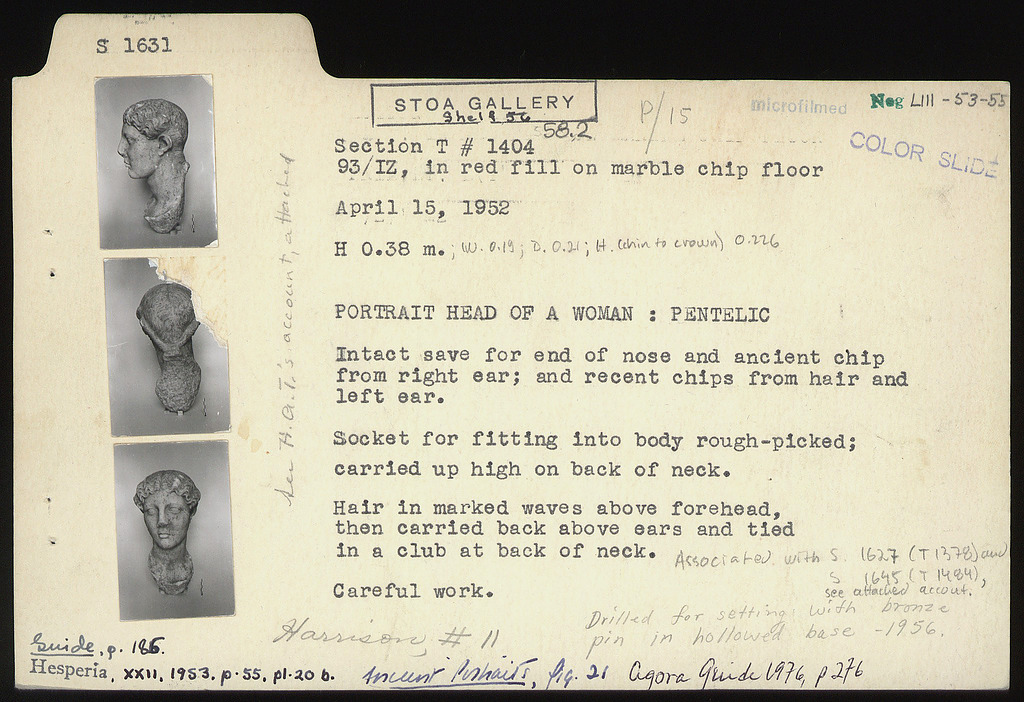 S 1631
STOA GALLERY
Shelf 56
58.2
P/15
microfilmed
Neg LIII-53-55
COLOR SLIDE
Section T # 1404
93/IZ, in red fill on marble chip floor
April 15, 1952
H 0.38 m.; W. 0.19; D. 0.21; H. (chin to crown) 0.226
PORTRAIT HEAD OF A WOMAN : PENTELIC
Intact save for end of nose and ancient chip
from right ear; and recent chips from hair and
left ear.
Socket for fitting into body rough-picked;
carried up high on back of neck.
Hair in marked waves above forehead,
then carried back above ears and tied
in a club at back of neck.
Associated with S. 1627 (T 1378) and
S 1645 (T 1484),
see attached accout.
Careful work.
Drilled for setting with bronze
pin in hollowed base -1956.
see H.A.T.'s account, attached
Harrison, # 11
Guide, p. 186.
Hesperia, XXII, 1953, p. 55, pl. 20 b.
Ancient Portraits, fig. 21
Agora Guide 1976, p 276